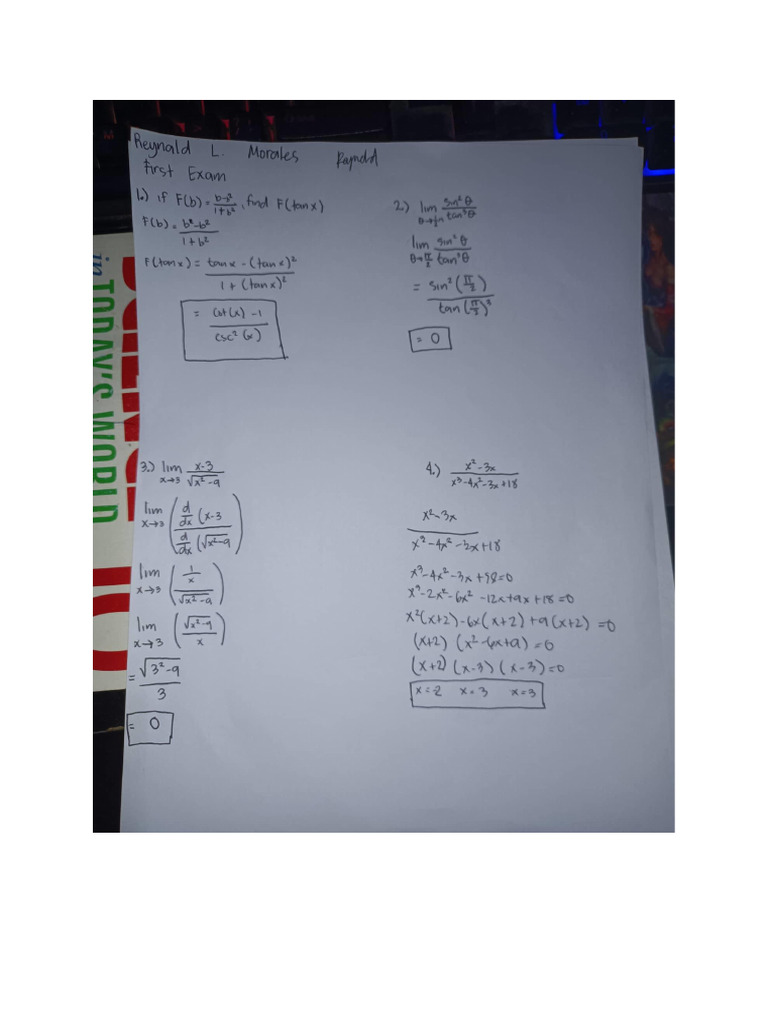 Reynald L. Morales
First Exam
1.) if F(b) = b-b²/1+b², find F(tanx)
F(b) = b²-b²/1+b²
F(tanx) = tanx-(tanx)²/1+(tanx)²
= cot(x)-1/csc²(x)
2.) lim sin²θ/tan³θ
lim θ→π/2 sin²θ/tan³θ
= sin²(π/2)/tan(π/2)³
= 0
3.) lim x→3 x-3/√x²-9
lim x→3 (d/dx (x-3/d/dx (√x²-9)
lim x→3 (1/x/√x²-9)
lim x→3 (√x²-9/x)
= √3²-9/3
= 0
4.) x²-3x/x³-4x²-3x+18
x²-3x/x³-4x²-3x+18
x³-4x²-3x+18=0
x³-2x²-6x²-12x+9x+18=0
x²(x+2)-6x(x+2)+9(x+2)=0
(x+2)(x²-6x+9)=0
(x+2)(x-3)(x-3)=0
x=-2 x=3 x=3
in TODAY'S WORLD